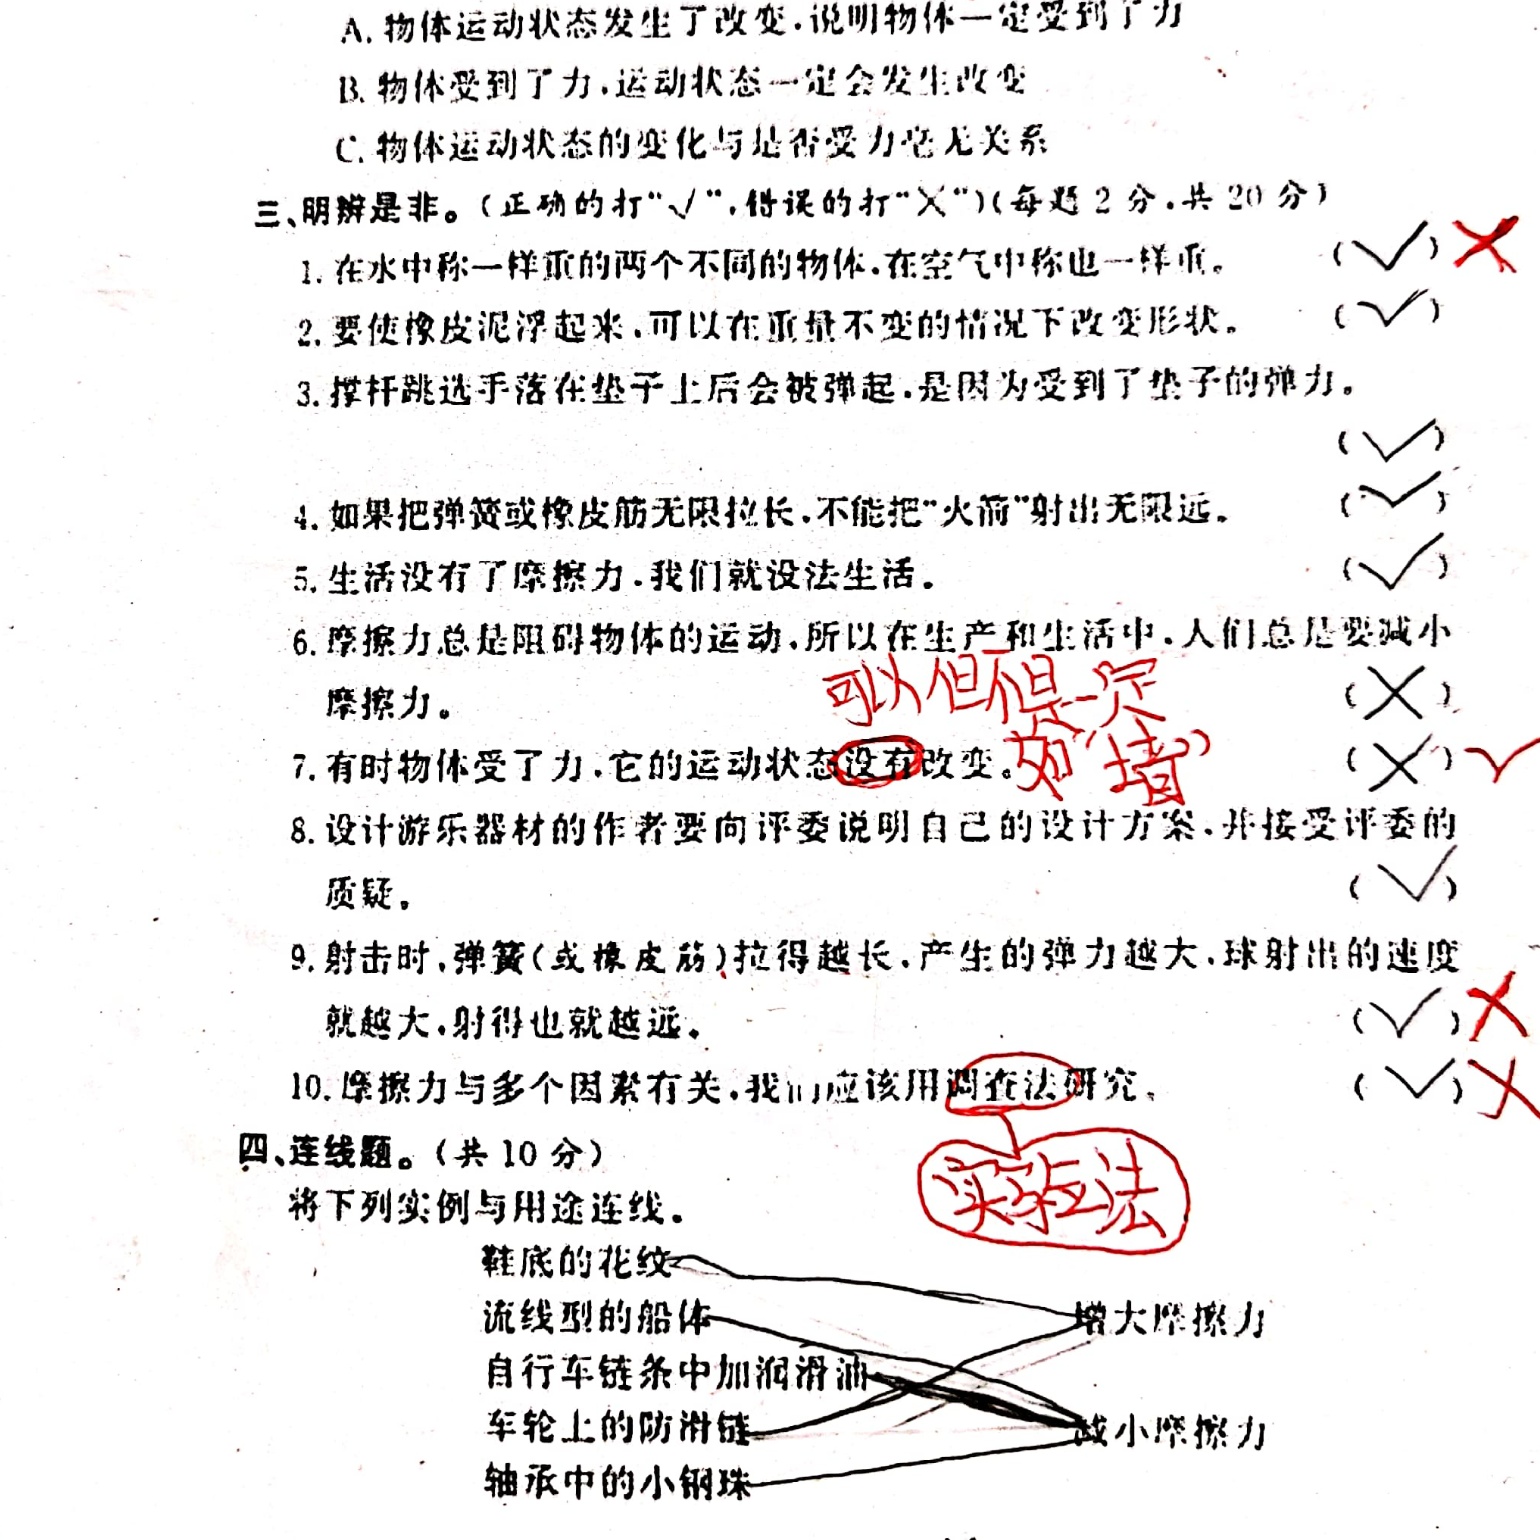 A. 物体运动状态发生了改变,说明物体一定受到了力
B. 物体受到了力,运动状态一定会发生改变
C. 物体运动状态的变化与是否受力毫无关系
三、明辨是非。(正确的打“√”,错误的打“X”)(每题 2 分,共 20 分)
1. 在水中称一样重的两个不同的物体,在空气中称也一样重。 (√) ×
2. 要使橡皮泥浮起来,可以在重量不变的情况下改变形状。 (√)
3. 撑杆跳选手落在垫子上后会被弹起,是因为受到了垫子的弹力。
(√)
4. 如果把弹簧或橡皮筋无限拉长,不能把“火箭”射出无限远。 (√)
5. 生活没有了摩擦力,我们就没法生活。 (√)
6. 摩擦力总是阻碍物体的运动,所以在生产和生活中,人们总是要减小
摩擦力。 (×)
可以但不是一定
7. 有时物体受了力,它的运动状态没有改变。 (×) √
如“墙”
8. 设计游乐器材的作者要向评委说明自己的设计方案,并接受评委的
质疑。 (√)
9. 射击时,弹簧(或橡皮筋)拉得越长,产生的弹力越大,球射出的速度
就越大,射得也就越远。 (√) ×
10. 摩擦力与多个因素有关,我们应该用调查法研究。 (√) ×
实验法
四、连线题。(共 10 分)
将下列实例与用途连线。
鞋底的花纹
流线型的船体 增大摩擦力
自行车链条中加润滑油
车轮上的防滑链 减小摩擦力
轴承中的小钢珠